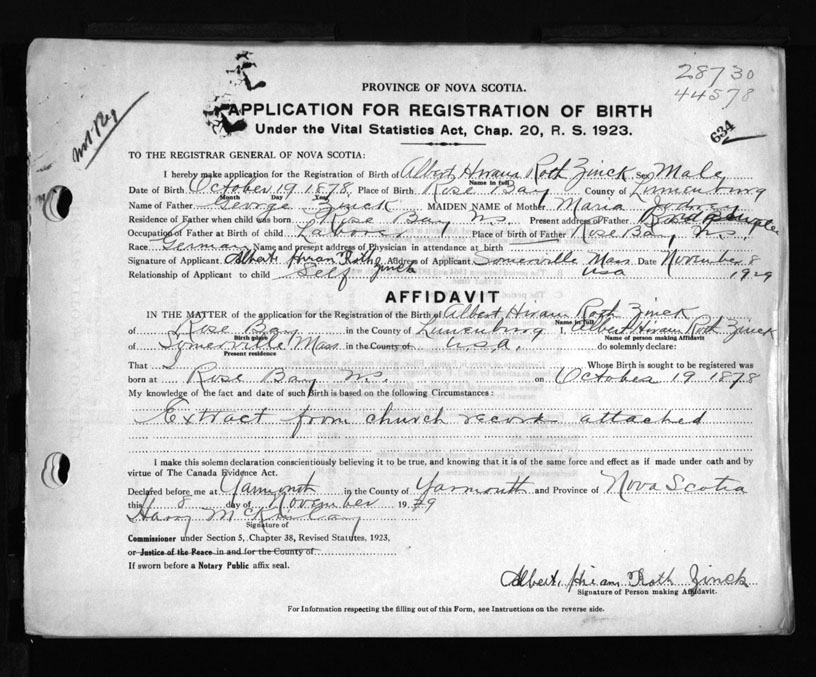 28730
44578
634
Not Reg
PROVINCE OF NOVA SCOTIA.
APPLICATION FOR REGISTRATION OF BIRTH
Under the Vital Statistics Act, Chap. 20, R. S. 1923.
TO THE REGISTRAR GENERAL OF NOVA SCOTIA:
I hereby make application for the Registration of Birth of Albert Hiram Roth Zinck Sex Male
Name in full
Date of Birth October 19 1878 Place of Birth Rose Bay County of Lunenburg
Month Day Year
Name of Father George Zinck MAIDEN NAME of Mother Maria
Residence of Father when child was born Rose Bay N.S. Present address of Father
Occupation of Father at Birth of child Labor Place of birth of Father Rose Bay, N.S.
Race German Name and present address of Physician in attendance at birth
Signature of Applicant Albert Hiram Roth Zinck Address of Applicant Somerville Mass USA Date November 8 1929
Relationship of Applicant to child Self
AFFIDAVIT
IN THE MATTER of the application for the Registration of the Birth of Albert Hiram Roth Zinck
Name in full
of Rose Bay in the County of Lunenburg I, Albert Hiram Roth Zinck
Birth place Name of person making Affidavit
of Somerville Mass in the County of U.S.A. do solemnly declare:
Present residence
That I Whose Birth is sought to be registered was
born at Rose Bay N.S. on October 19 1878
My knowledge of the fact and date of such Birth is based on the following Circumstances:
Extract from church record attached
I make this solemn declaration conscientiously believing it to be true, and knowing that it is of the same force and effect as if made under oath and by
virtue of The Canada Evidence Act.
Declared before me at Yarmouth in the County of Yarmouth and Province of Nova Scotia
this 8 day of November 1929
Harry
Signature of
Commissioner under Section 5, Chapter 38, Revised Statutes, 1923,
or Justice of the Peace in and for the County of
If sworn before a Notary Public affix seal.
Albert Hiram Roth Zinck
Signature of Person making Affidavit.
For Information respecting the filling out of this Form, see Instructions on the reverse side.